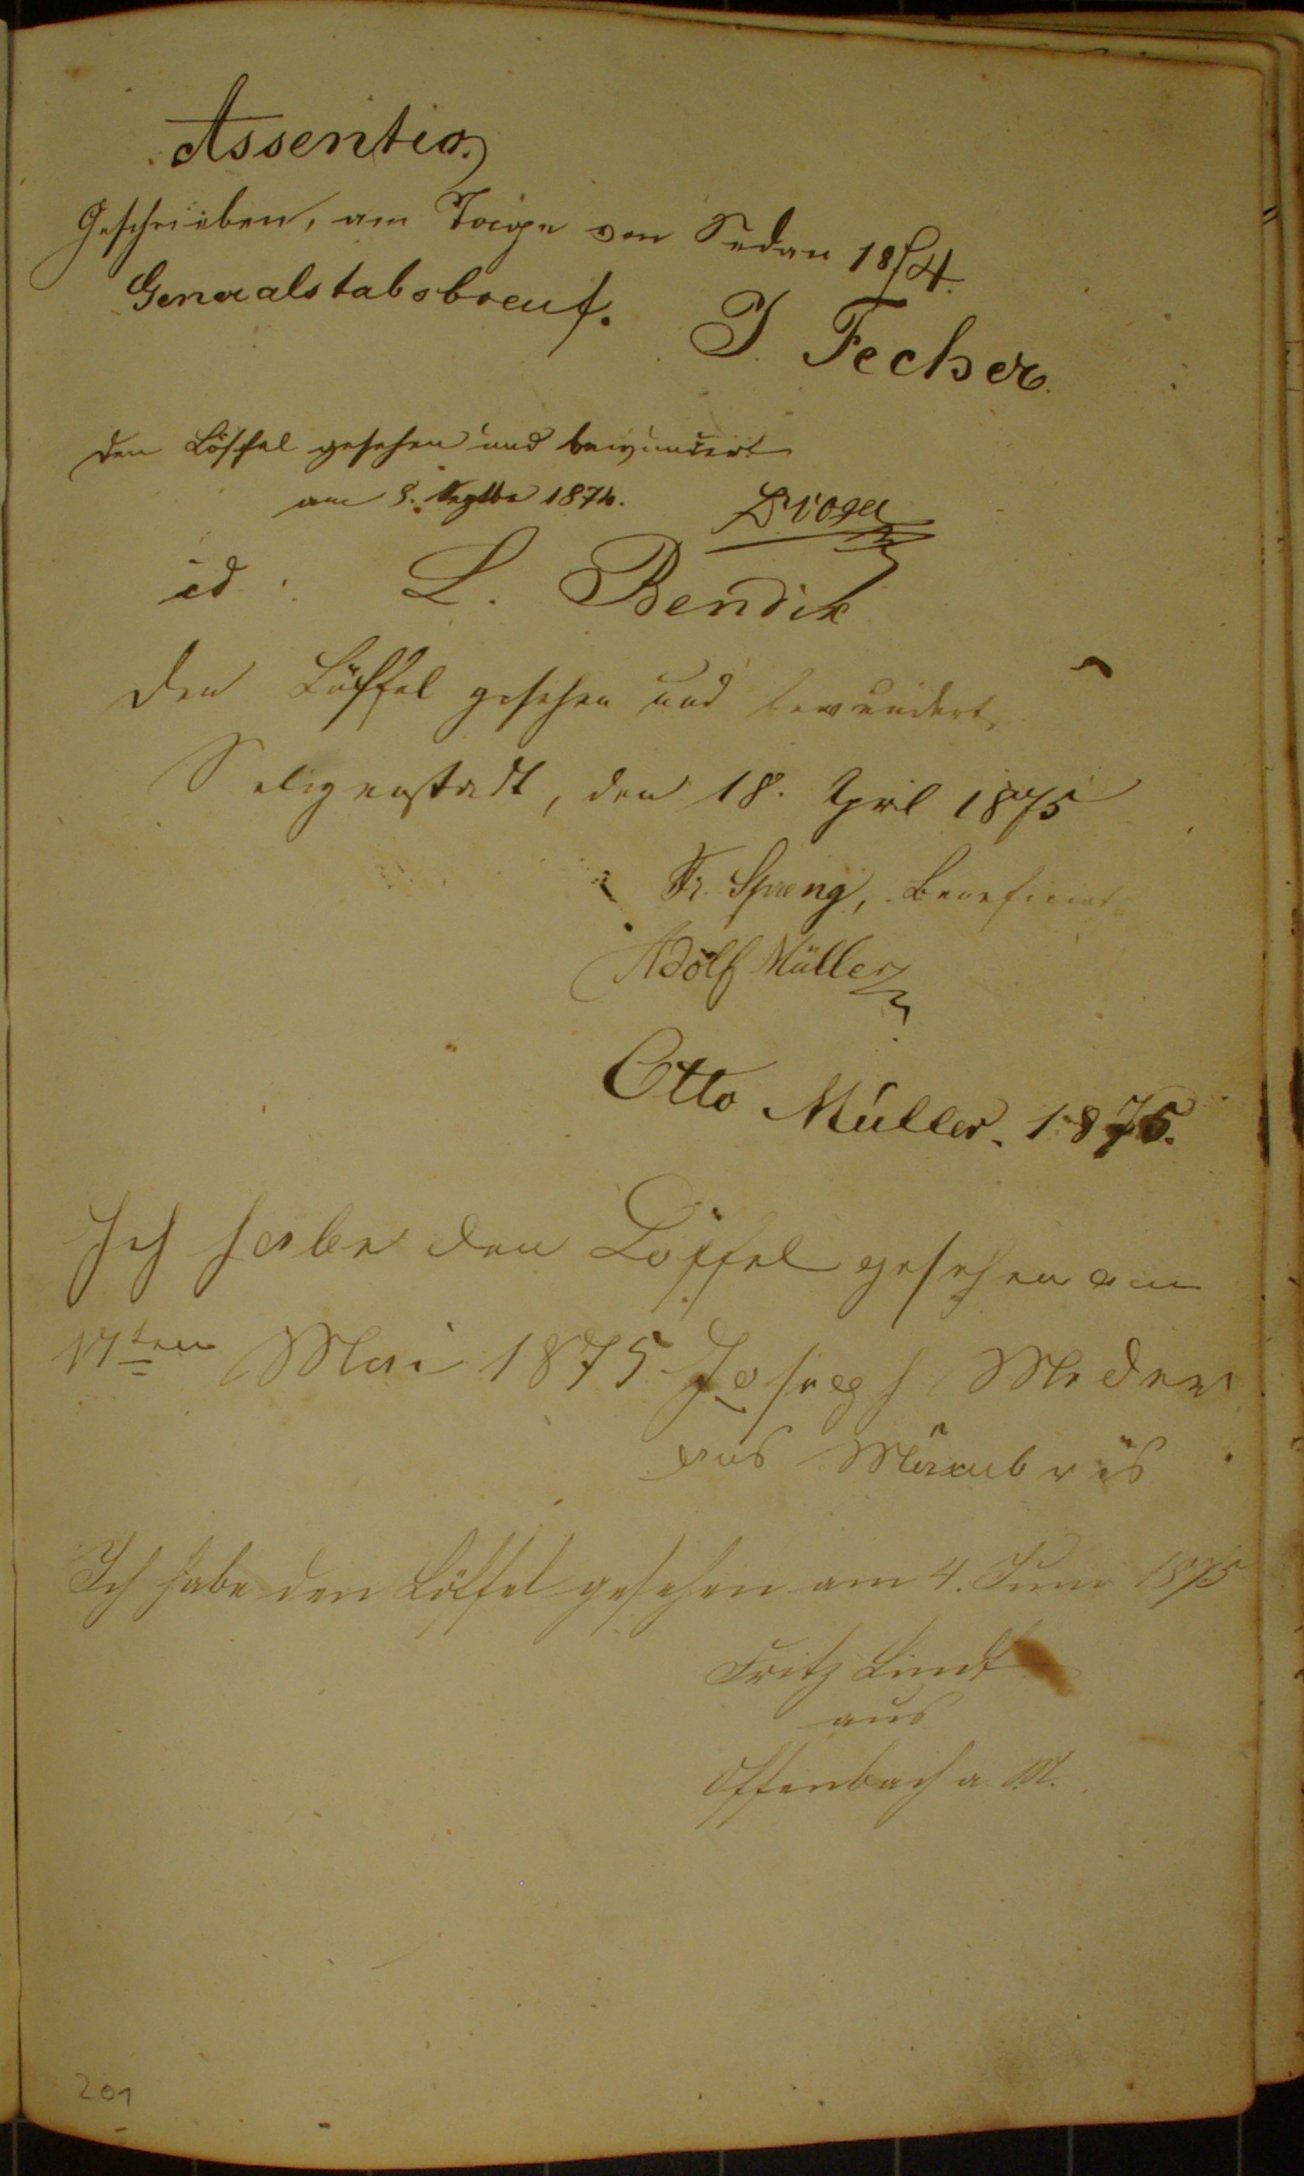 Assentio.
Geschrieben, am Tage von Sedan 1874.
Generalstabsbreuf. J. Fecher.
den Löffel gesehen und bewundert
am 8. Septbr 1874.
id. L. Bendix
den Löffel gesehen und bewundert,
Seligenstadt, den 18. April 1875
Fr. Spreng, Beneficiat.
Adolf Müller
Otto Müller. 1875.
Ich habe den Löffel gesehen am
17ten Mai 1875 Joseph Meder
aus
Ich habe den Löffel gesehen am 4. Juni 1875
Fritz Lindt
aus
Offenbach a. M.
201